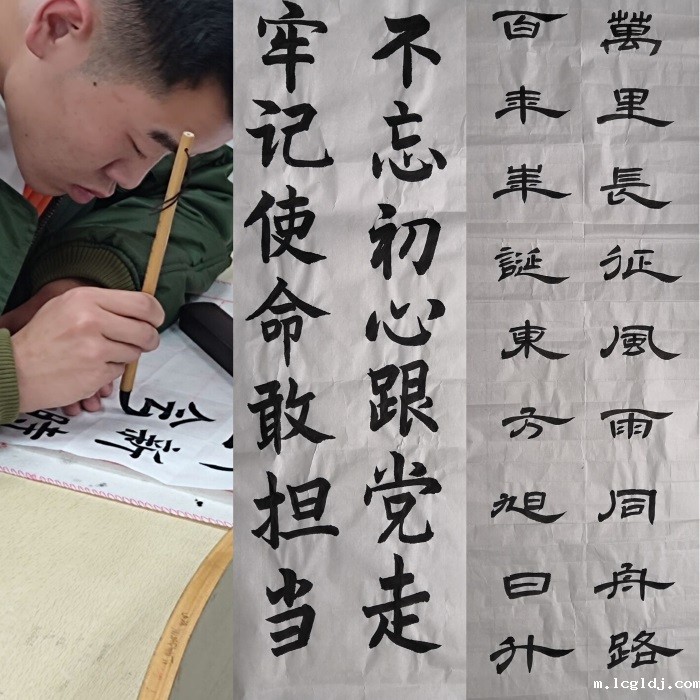 不忘初心跟党走
牢记使命敢担当
萬里長征風雨同舟路
百年華誕東方旭日升
新
m.lcgldj.com